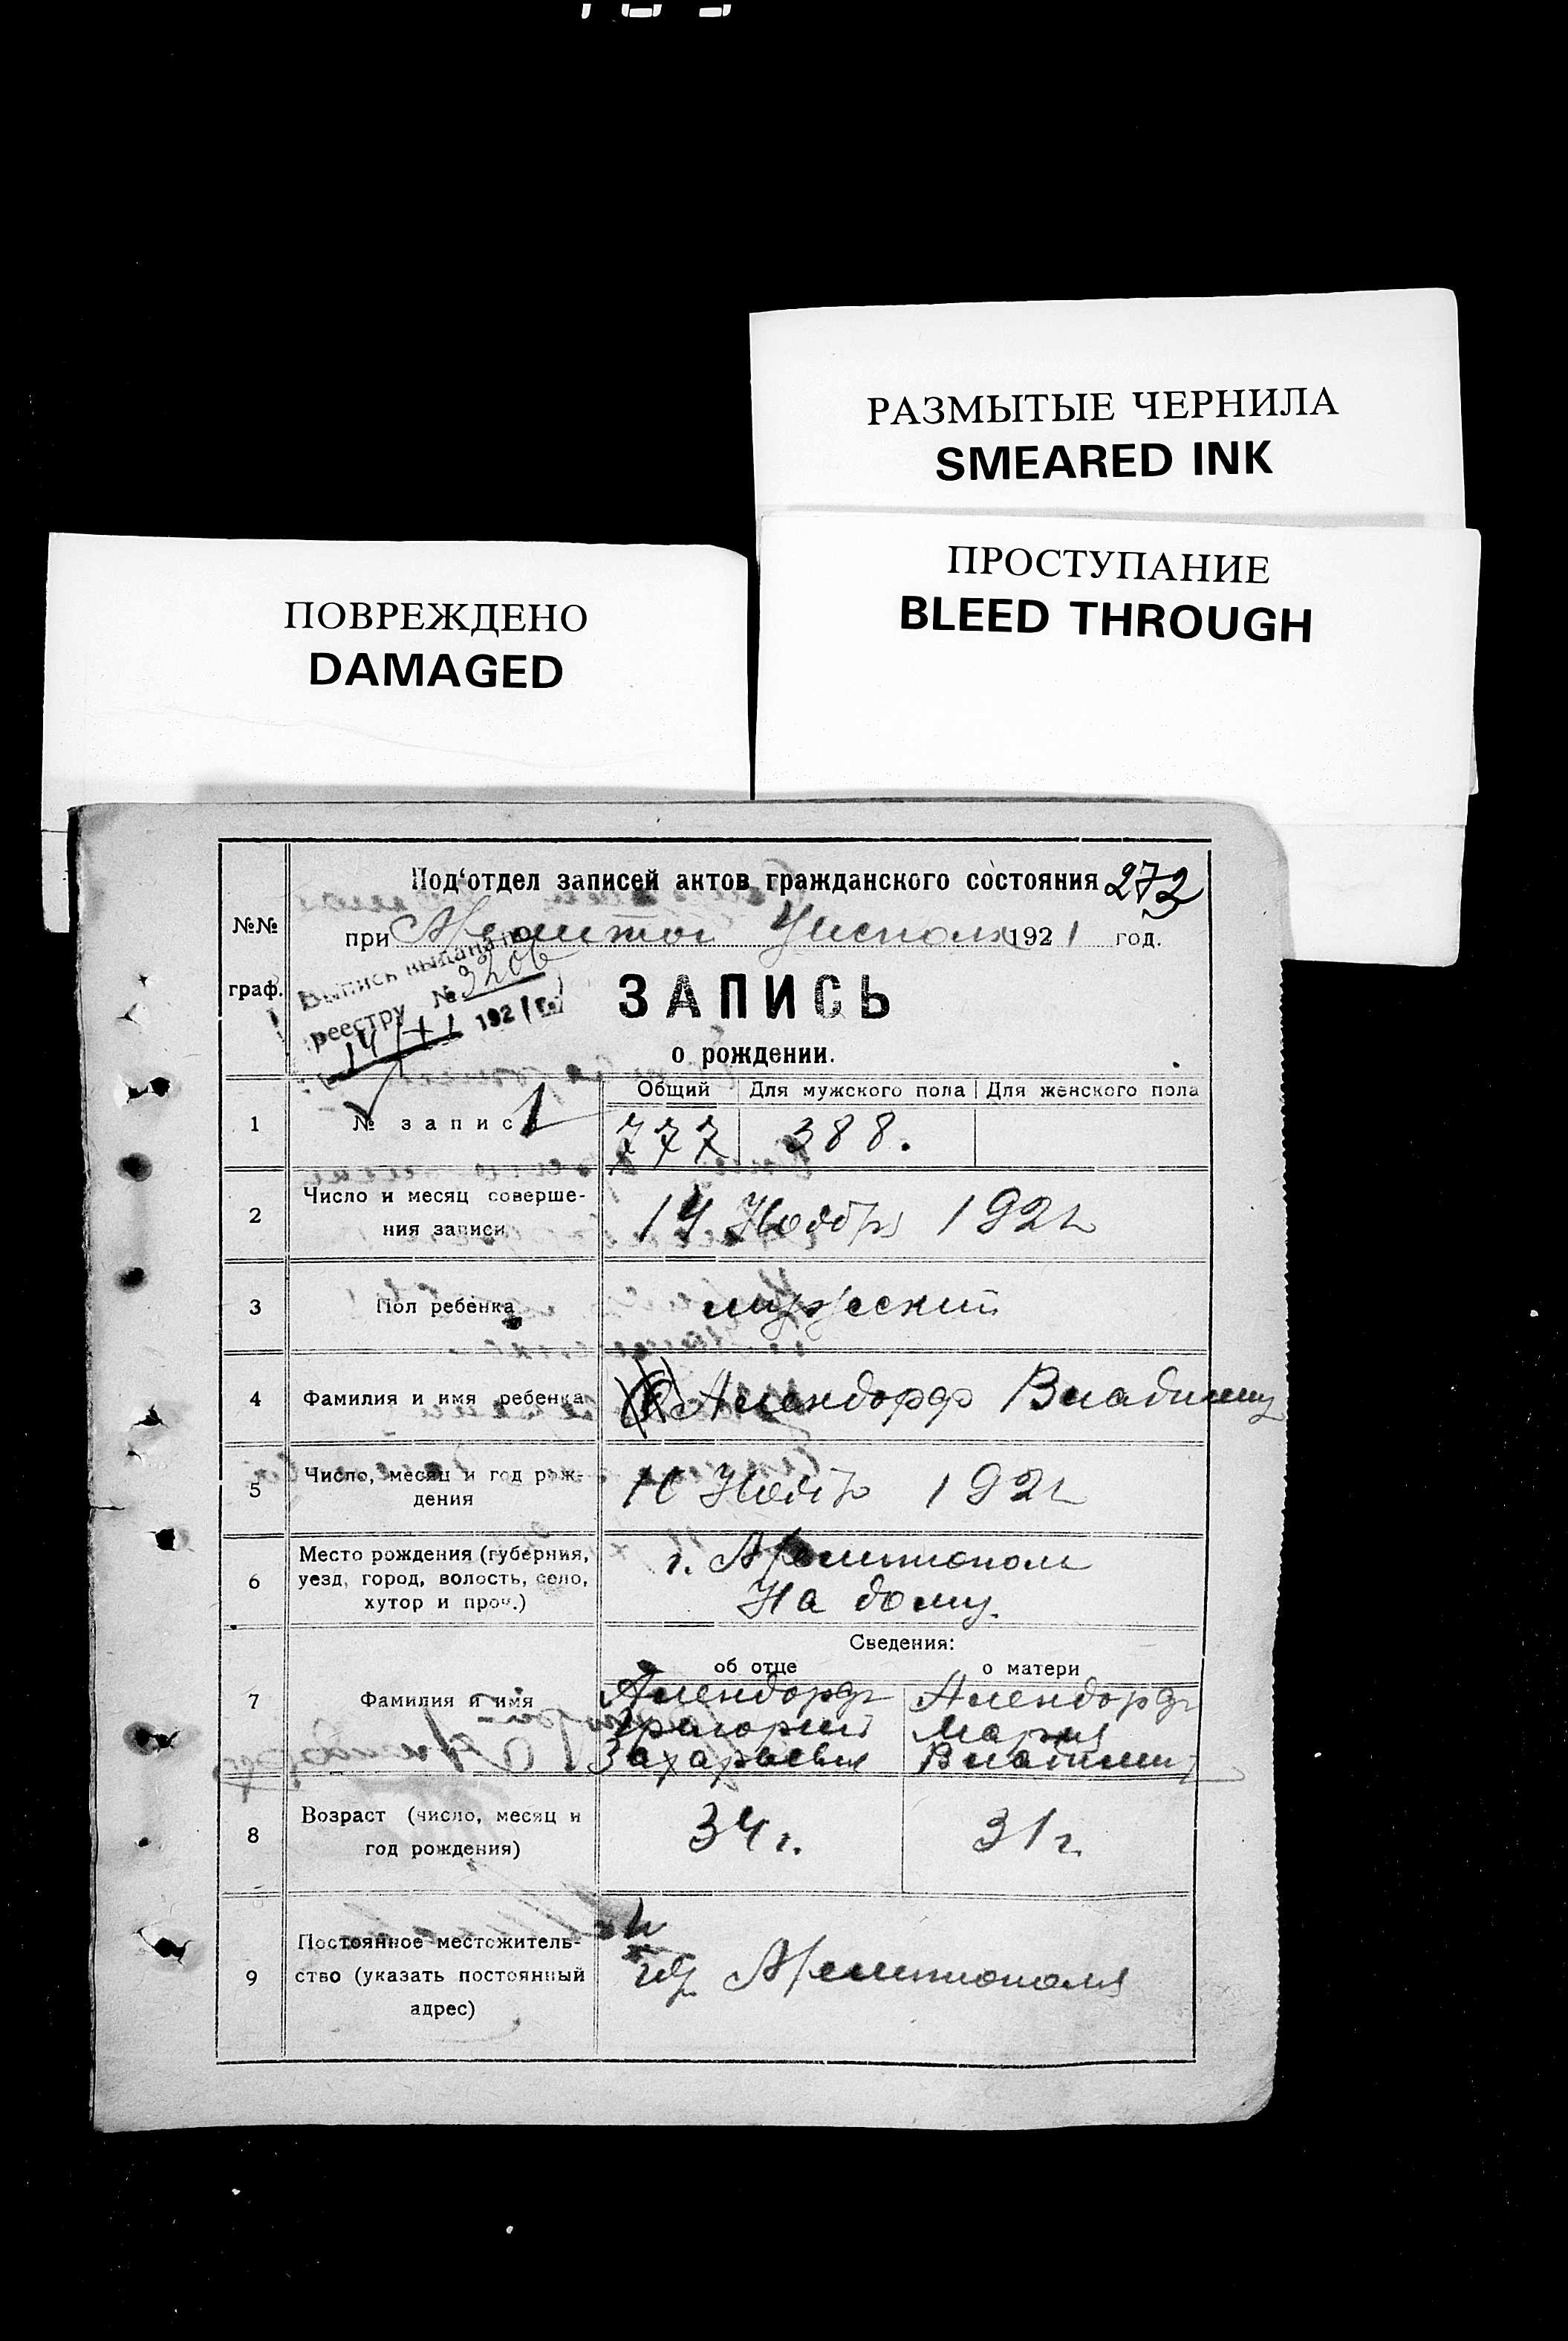 РАЗМЫТЫЕ ЧЕРНИЛА
SMEARED INK
ПРОСТУПАНИЕ
BLEED THROUGH
ПОВРЕЖДЕНО
DAMAGED
№№ граф.
Под‘отдел записей актов гражданского состояния 272
при 1921 год.
Выпись выдана по
реестру № 3206
14/XI 1921 г.
ЗАПИСЬ
о рождении.
Общий Для мужского пола Для женского пола
1 № запис 777 388.
2 Число и месяц совершения записи 14 Ноябр 1921
3 Пол ребенка мужеский
4 Фамилия и имя ребенка Алендорф Владимир
5 Число, месяц и год рождения Нояб 1921
6 Место рождения (губерния, уезд, город, волость, село, хутор и проч.) г. Мелитополь
На дому.
Сведения:
об отце о матери
7 Фамилия и имя Алендорф Алендорф
Григорий Мария
Захарьевич Владимир
8 Возраст (число, месяц и год рождения) 34 г. 31 г.
9 Постоянное местожительство (указать постоянный адрес) Мелитополя